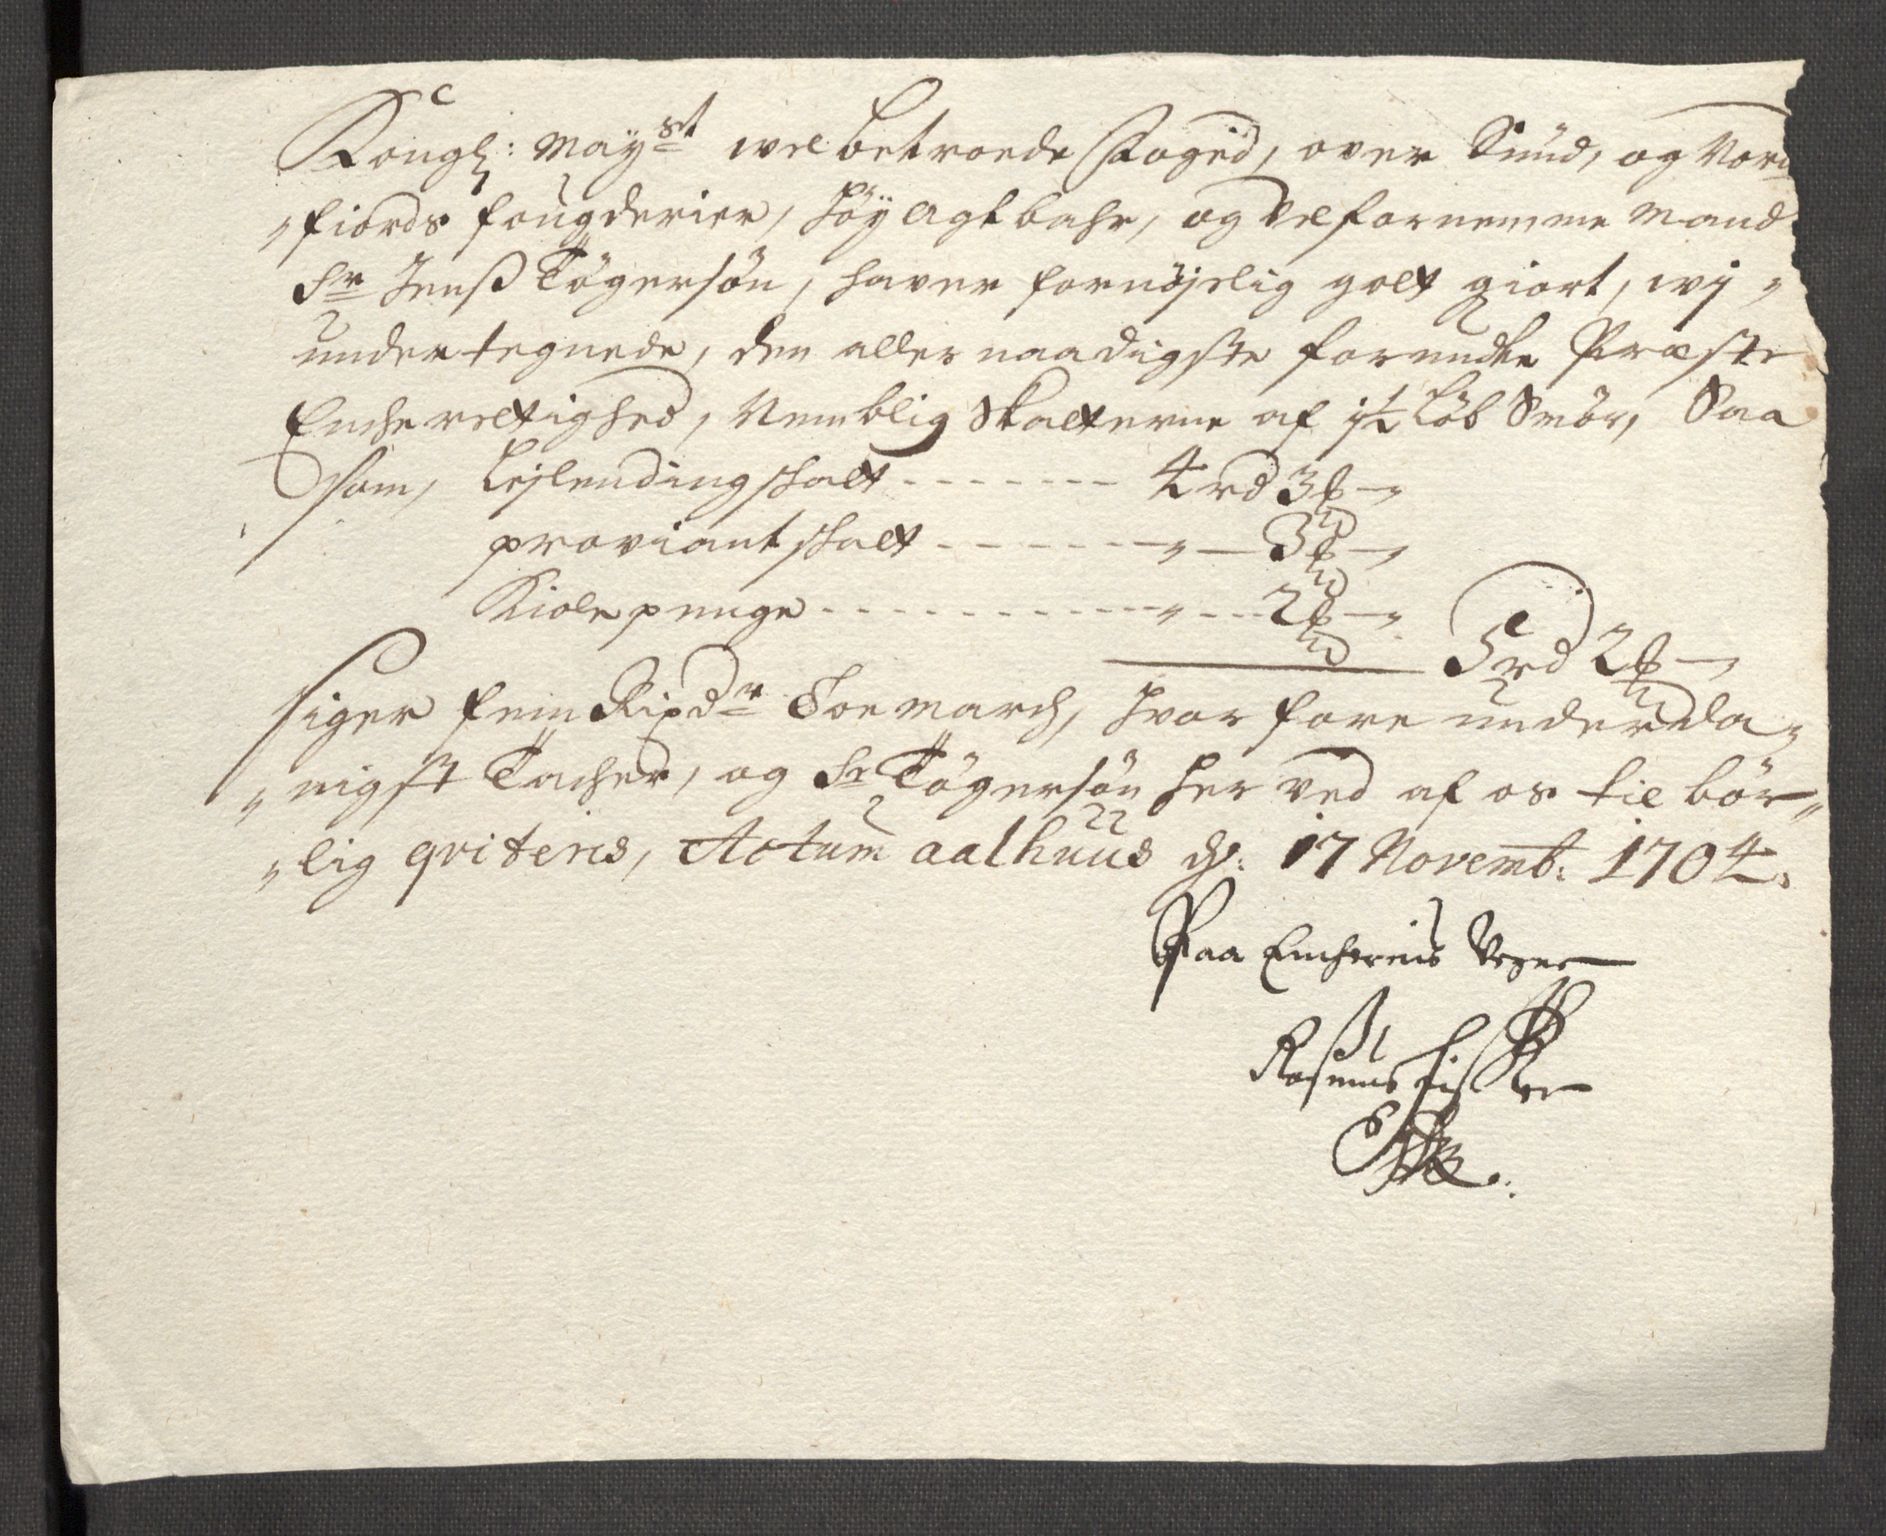 Kongl: May:st wel betroede Foged, over Sund, og Nord
"fiords fougderier, Höy Agtbahr, og Velfornemme Mand
Sr Jenß Tögersön, haver fornöjelig golt giort, wj
undertegnede, den allernaadigste forundte Præste
Encherettighed, Nemblig Skatterne af 1½ Löb Smör, Saa
som, Lejlendingskatt - - - - - - - 4 rd 3 ₰ —
proviantskatt - - - - - - - " — 3 ₰ —
Kiolepenge - - - - - - - - - - - - " - - - 2 ₰ —
5 rd 2 ₰ —
siger fem Rixdr Toe march, hvor fore underda=
"nigst Tacher, og Sr Tögersön her ved af os til bör=
"lig qviteris, Actum aalhuus d: 17 Novemb: 1704.
Paa Encherens Vegne
Rasmus Fisker